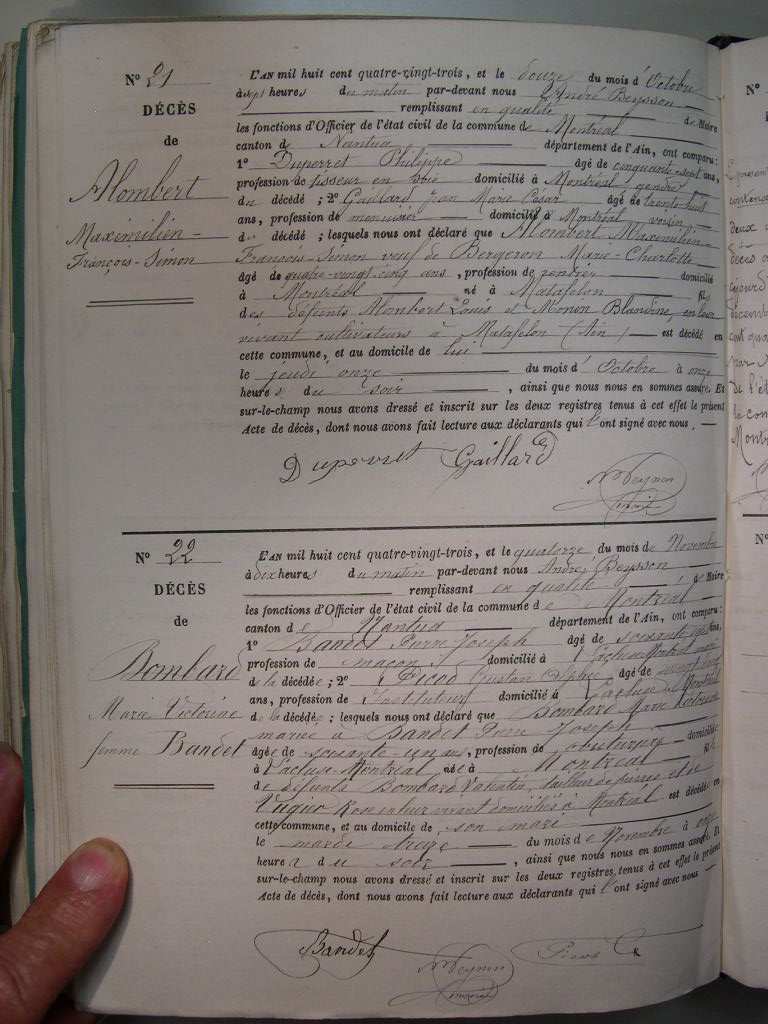 N° 21
DÉCÈS
de
Alombert
Maximilien-
François-Simon
L'AN mil huit cent quatre-vingt-trois, et le douze du mois d'Octobre
à sept heures du matin par-devant nous André Beysson
remplissant en qualité de Maire
les fonctions d'Officier de l'état civil de la commune de Montréal
canton de Nantua département de l'Ain, ont comparu :
1° Duperret Philippe âgé de cinquante-sept ans,
profession de tisseur en soie domicilié à Montréal, gendre
du décédé ; 2° Gaillard Jean Marie César âgé de trente huit
ans, profession de menuisier domicilié à Montréal voisin
du décédé ; lesquels nous ont déclaré que Alombert Maximilien-
François-Simon veuf de Bergeron Marie-Charlotte
âgé de quatre-vingt-cinq ans, profession de rentier domicilié
à Montréal né à Matafelon fils
des défunts Alombert Louis et Monon Blandine, en leur
vivant cultivateurs à Matafelon (Ain) est décédé en
cette commune, et au domicile de lui
le jeudi onze du mois d'Octobre à onze
heures du soir, ainsi que nous nous en sommes assuré. Et
sur-le-champ nous avons dressé et inscrit sur les deux registres tenus à cet effet le présent
Acte de décès, dont nous avons fait lecture aux déclarants qui l'ont signé avec nous.
Duperret Gaillard
N° 22
DÉCÈS
de
Bombard
Marie Victorine
femme Bandet
L'AN mil huit cent quatre-vingt-trois, et le quatorze du mois de Novembre
à dix heures du matin par-devant nous André Beysson
remplissant en qualité de Maire
les fonctions d'Officier de l'état civil de la commune de Montréal
canton de Nantua département de l'Ain, ont comparu :
1° Bandet Pierre Joseph âgé de soixante ans,
profession de maçon domicilié à
de la décédée ; 2° âgé de
ans, profession d'Instituteur domicilié à
de la décédée ; lesquels nous ont déclaré que Bombard Marie Victorine
mariée à Bandet Pierre Joseph
âgée de soixante-un ans, profession de domiciliée
à Lacluse-Montréal née à Montréal fille
de défunts Bombard Valentin, tailleur de pierres et de
en leur vivant domiciliés à Montréal est décédée en
cette commune, et au domicile de son mari
le mardi treize du mois de Novembre à onze
heures du soir, ainsi que nous nous en sommes assuré. Et
sur-le-champ nous avons dressé et inscrit sur les deux registres tenus à cet effet le présent
Acte de décès, dont nous avons fait lecture aux déclarants qui l'ont signé avec nous
Bandet